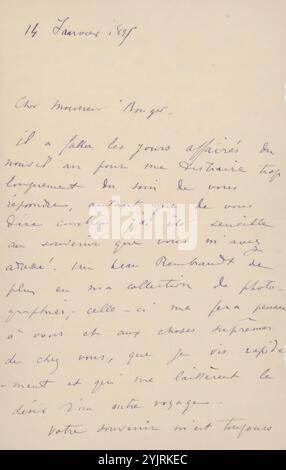 14 Janvier 189
Cher Monsieur Rouger,
il a fallu les jours affairés du
nouvel an pour me distraire trop
longuement du soin de vous
répondre, autant que de vous
dire combien j'ai été sensible
au souvenir que vous m'avez
adressé. Un beau Rembrandt de
plus en ma collection de photo-
graphies; celle-ci me fera penser
à vous et aux choses suprêmes
de chez vous, que je vis rapide
-ment et qui me laissèrent le
désir d'un autre voyage.
Votre souvenir m'est toujours
alamy
Image ID: 2YJRKEC
www.alamy.com